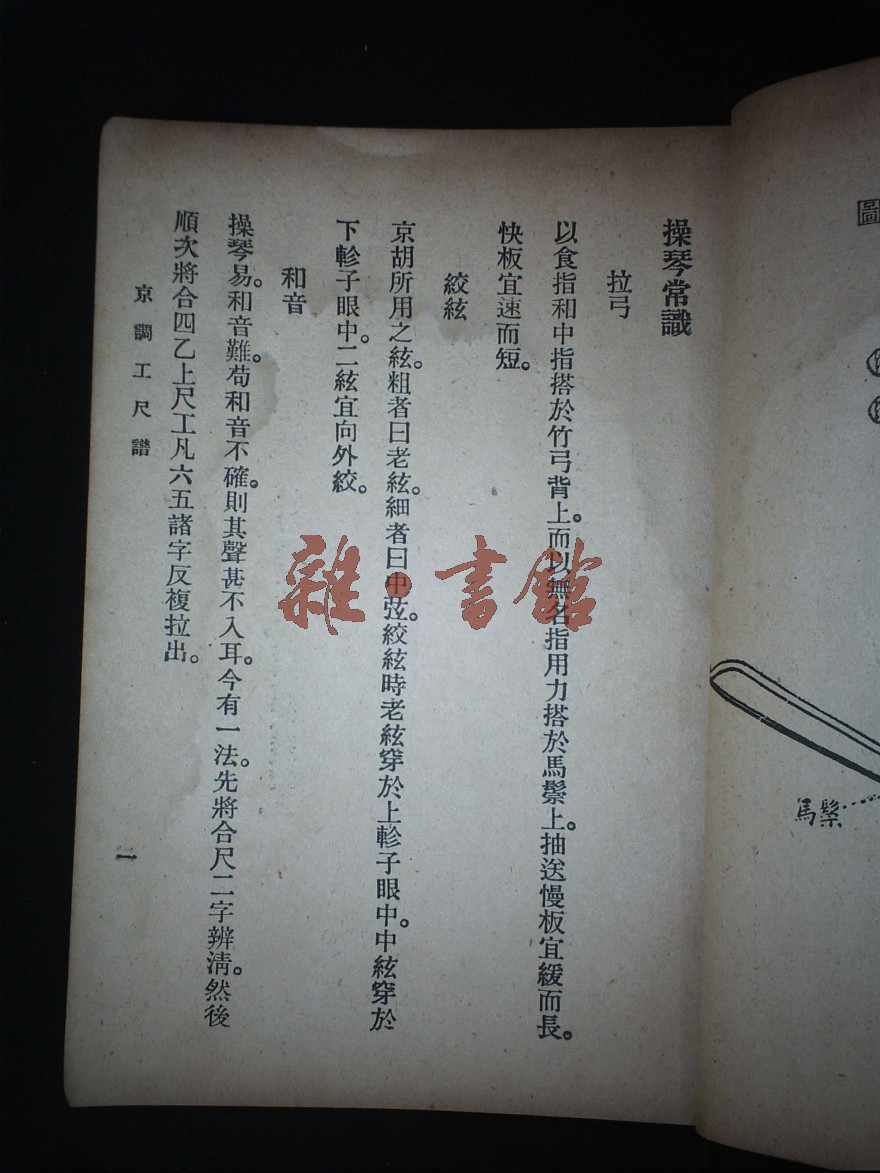 圖
馬鬃
操琴常識
拉弓
以食指和中指搭於竹弓背上。而以無名指用力搭於馬鬃上。抽送慢板宜緩而長。
快板宜速而短。
絞絃
京胡所用之絃。粗者曰老絃。細者曰中弦。絞絃時老絃穿於上軫子眼中。中絃穿於
下軫子眼中。二絃宜向外絞。
和音
操琴易。和音難。苟和音不確。則其聲甚不入耳。今有一法。先將合尺二字辨淸。然後
順次將合四乙上尺工凡六五諸字反複拉出。
京調工尺譜
一
雜·書館